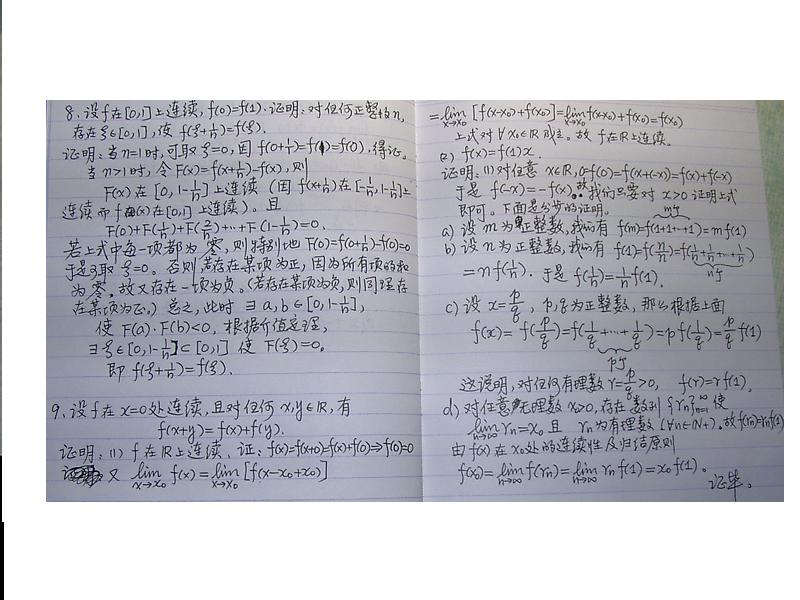 8. 设f在[0,1]上连续, f(0)=f(1). 证明: 对任何正整数n,
存在ξ∈[0,1], 使 f(ξ+1/n)=f(ξ).
证明: 当n=1时, 可取ξ=0, 因f(0+1/1)=f(1)=f(0). 得证.
当n>1时, 令F(x)=f(x+1/n)-f(x), 则
F(x)在[0,1-1/n]上连续 (因f(x+1/n)在[-1/n,1-1/n]上
连续而f(x)在[0,1]上连续). 且
F(0)+F(1/n)+F(2/n)+…+F(1-1/n)=0.
若上式中每一项都为零, 则特别地F(0)=f(0+1/n)-f(0)=0
于是可取ξ=0. 否则若存在某项为正, 因为所有项的和
为零, 故又存在一项为负. (若存在某项为负, 则同理存
在某项为正.) 总之, 此时 ∃a,b∈[0,1-1/n],
使 F(a)·F(b)<0, 根据介值定理,
∃ξ∈[0,1-1/n]⊂[0,1] 使 F(ξ)=0.
即 f(ξ+1/n)=f(ξ).
9. 设f在x=0处连续, 且对任何x,y∈R, 有
f(x+y)=f(x)+f(y).
证明: (1) f在R上连续. 证: f(x)=f(x+0)=f(x)+f(0)⇒f(0)=0
又 lim_{x→x₀} f(x)=lim_{x→x₀}[f(x-x₀+x₀)]
=lim_{x→x₀}[f(x-x₀)+f(x₀)]=lim_{x→x₀}f(x-x₀)+f(x₀)=f(x₀)
上式对∀x₀∈R成立. 故f在R上连续.
f(x)=f(1)x.
证明: (1) 对任意x∈R, 0=f(0)=f(x+(-x))=f(x)+f(-x)
于是 f(-x)=-f(x). 故我们只要对x>0证明上式
即可. 下面是分步的证明.
a) 设m为正整数, 我们有 f(m)=f(1+1+…+1)=mf(1)
m个
b) 设n为正整数, 我们有 f(1)=f(n/n)=f(1/n+1/n+…+1/n)
n个
=nf(1/n). 于是 f(1/n)=1/n f(1).
c) 设 x=p/q, p,q为正整数, 那么根据上面
f(x)=f(p/q)=f(1/q+…+1/q)=pf(1/q)=p/q f(1)
p个
这说明, 对任何有理数r=p/q>0, f(r)=rf(1).
d) 对任意无理数x₀>0, 存在数列{rₙ}ₙ₌₁^∞使
lim_{n→∞} rₙ=x₀ 且 rₙ为有理数(∀n∈N+). 故f(rₙ)=rₙf(1)
由f(x)在x₀处的连续性及归结原则
f(x₀)=lim_{n→∞}f(rₙ)=lim_{n→∞}rₙf(1)=x₀f(1).
证毕.